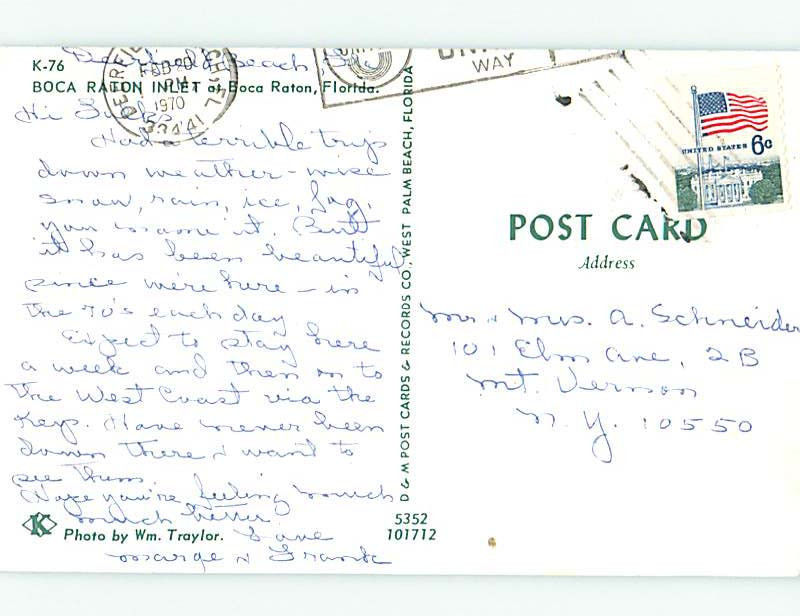 Deerfield Beach, Fla
K-76
BOCA RATON INLET at Boca Raton, Florida.
DEERFIELD
FEB 20
PM
1970
33441
WAY
UNITED STATES 6c
Hi
Had a terrible trip
down weather-wise
snow, rain, ice, fog,
you name it. But
it has been beautiful
since we're here - in
the 70's each day
Expect to stay here
a week and then on to
the West Coast via the
Keys. Have never been
down there & want to
see them.
Hope you're feeling much
much better.
Love
Marge & Frank
Photo by Wm. Traylor.
K
D & M POST CARDS & RECORDS CO., WEST PALM BEACH, FLORIDA
5352
101712
POST CARD
Address
Mr & Mrs. A. Schneider
101 Elm Ave, 2B
Mt. Vernon
N.Y. 10550